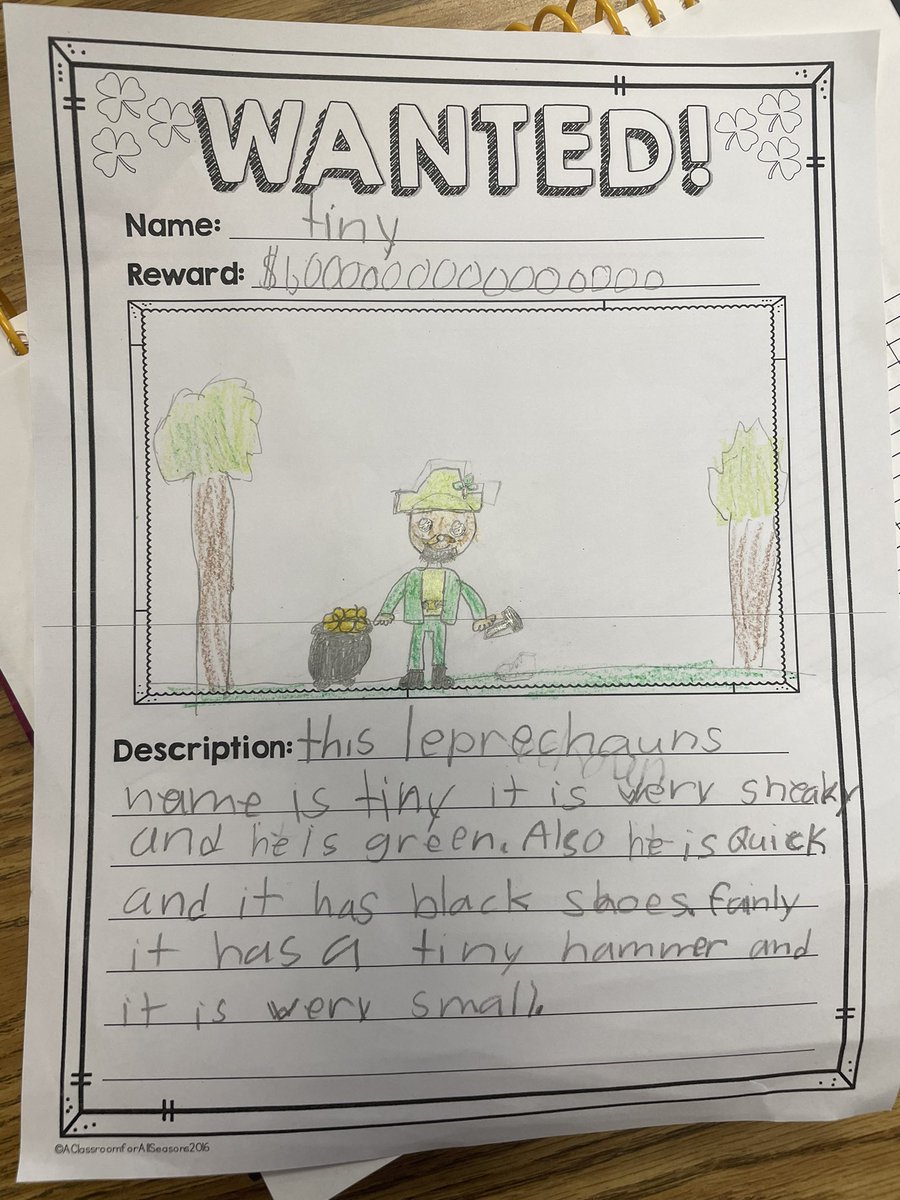 WANTED!
Name: tiny
Reward: $1,000000000000000
Description: this leprechauns
name is tiny it is very sneaky
and he is green. Also he is Quick
and it has black shoes. fainly
it has a tiny hammer and
it is very small.
©AClassroomforAllSeasons2016